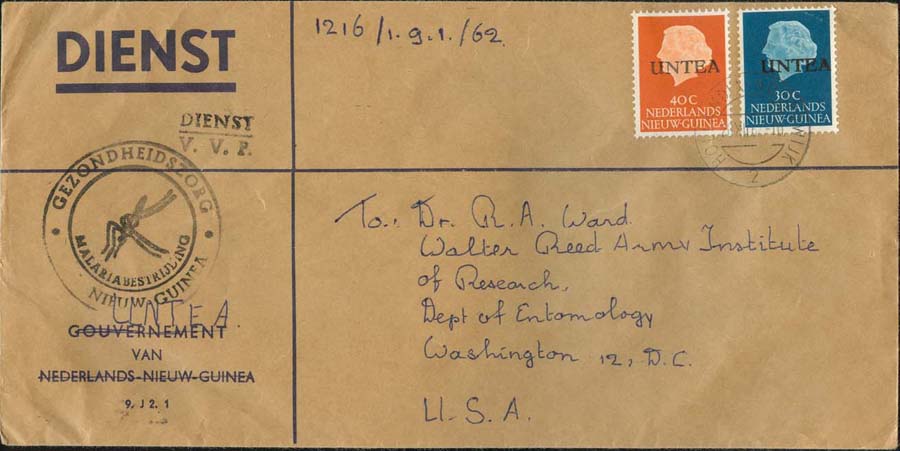 DIENST
1216/1.9.1./62.
UNTEA
40 C
NEDERLANDS
NIEUW-GUINEA
UNTEA
30 C
NEDERLANDS
NIEUW-GUINEA
DIENST
V. V. P.
GEZONDHEIDSZORG
MALARIABESTRIJDING
NIEUW-GUINEA
UNTEA
GOUVERNEMENT
VAN
NEDERLANDS-NIEUW-GUINEA
9. J 2. 1
To: Dr. R. A. Ward
Walter Reed Army Institute
of Research,
Dept of Entomology
Washington 12, D.C.
U.S.A.